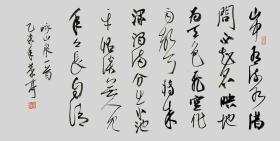 山中有流水借
问不知名映地
为天色飞空作
雨声转来
深涧满分出小池
平恬澹无人见
年年长自清
咏山泉一首
乙未年